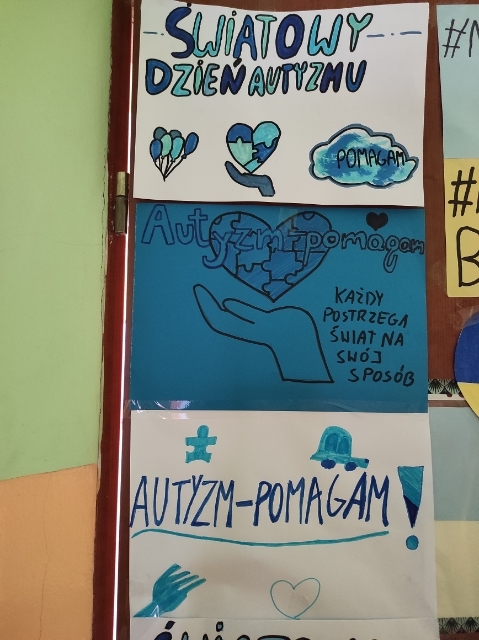 ŚWIATOWY
DZIEŃ AUTYZMU
POMAGAM
Autyzm-pomagam
KAŻDY
POSTRZEGA
ŚWIAT NA
SWÓJ
SPOSÓB
AUTYZM-POMAGAM!
ŚWIATOWY
#
#
B